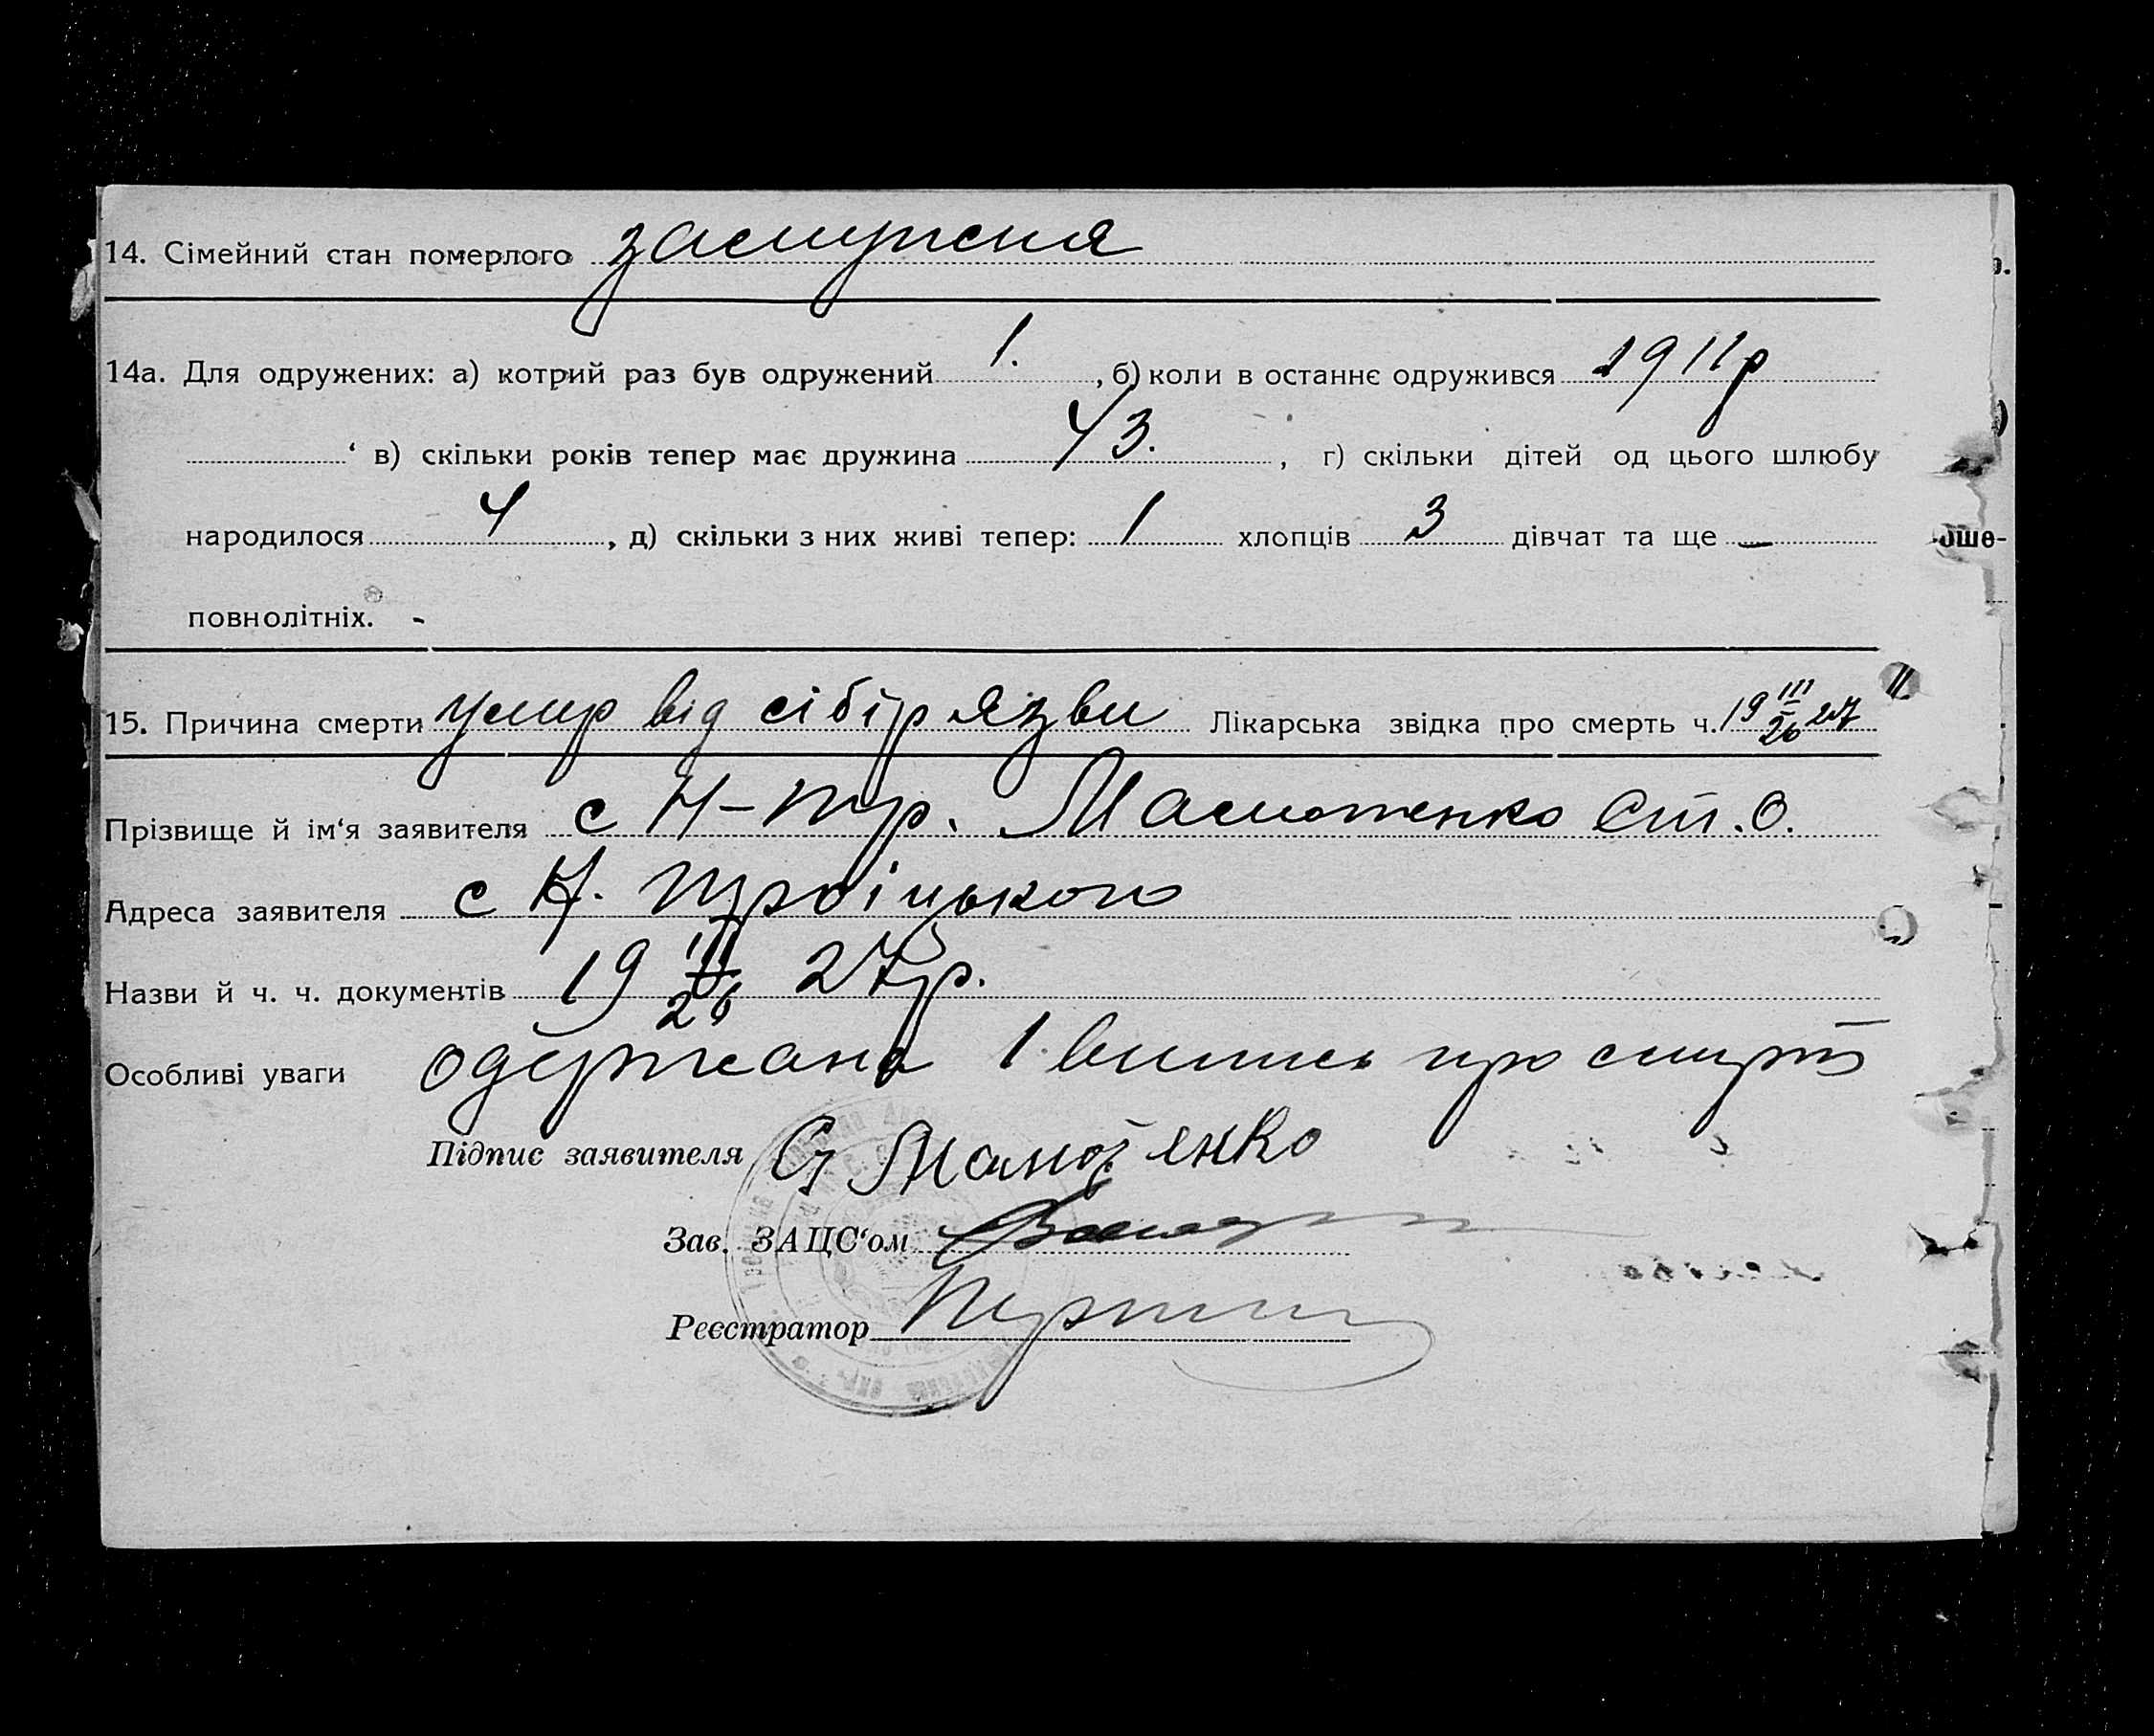 14. Сімейний стан померлого замужена
14а. Для одружених: а) котрий раз був одружений 1. , б) коли в останнє одружився 1911р
‘ в) скільки років тепер має дружина 43. , г) скільки дітей од цього шлюбу
народилося 4 , д) скільки з них живі тепер: 1 хлопців 3 дівчат та ще —
повнолітніх. -
15. Причина смерти умир від сібір язви Лікарська звідка про смерть ч. 19 III/26 27
Прізвище й ім‘я заявителя с Н-тр. Ст. О.
Адреса заявителя с Н. Троіцького
Назви й ч. ч. документів 19 III/26 27р.
Особливі уваги одержана 1 випись про смирть
Підпис заявителя
Зав. ЗАЦС‘ом
Реєстратор